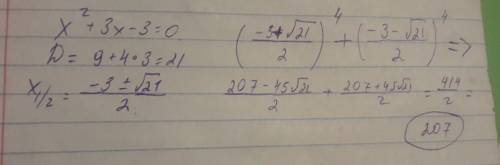 x² + 3x - 3 = 0
D = 9 + 4 • 3 = 21
x₁/₂ = (-3 ± √21)/2
((-3 + √21)/2)⁴ + ((-3 - √21)/2)⁴ =>
(207 - 45√21)/2 + (207 + 45√21)/2 = 414/2 =
207